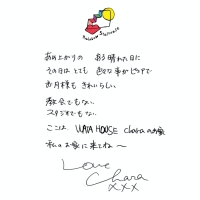 Rainbow Staircase
あめ上がりの よく晴れた日に
その日は とても 色々な事がピュアで
お月様も きれいらしい
教会でもない
スタジオでもない
ここは、 WAIA HOUSE charaのお家
私のお家に来てね〜
Love
Chara
xxx